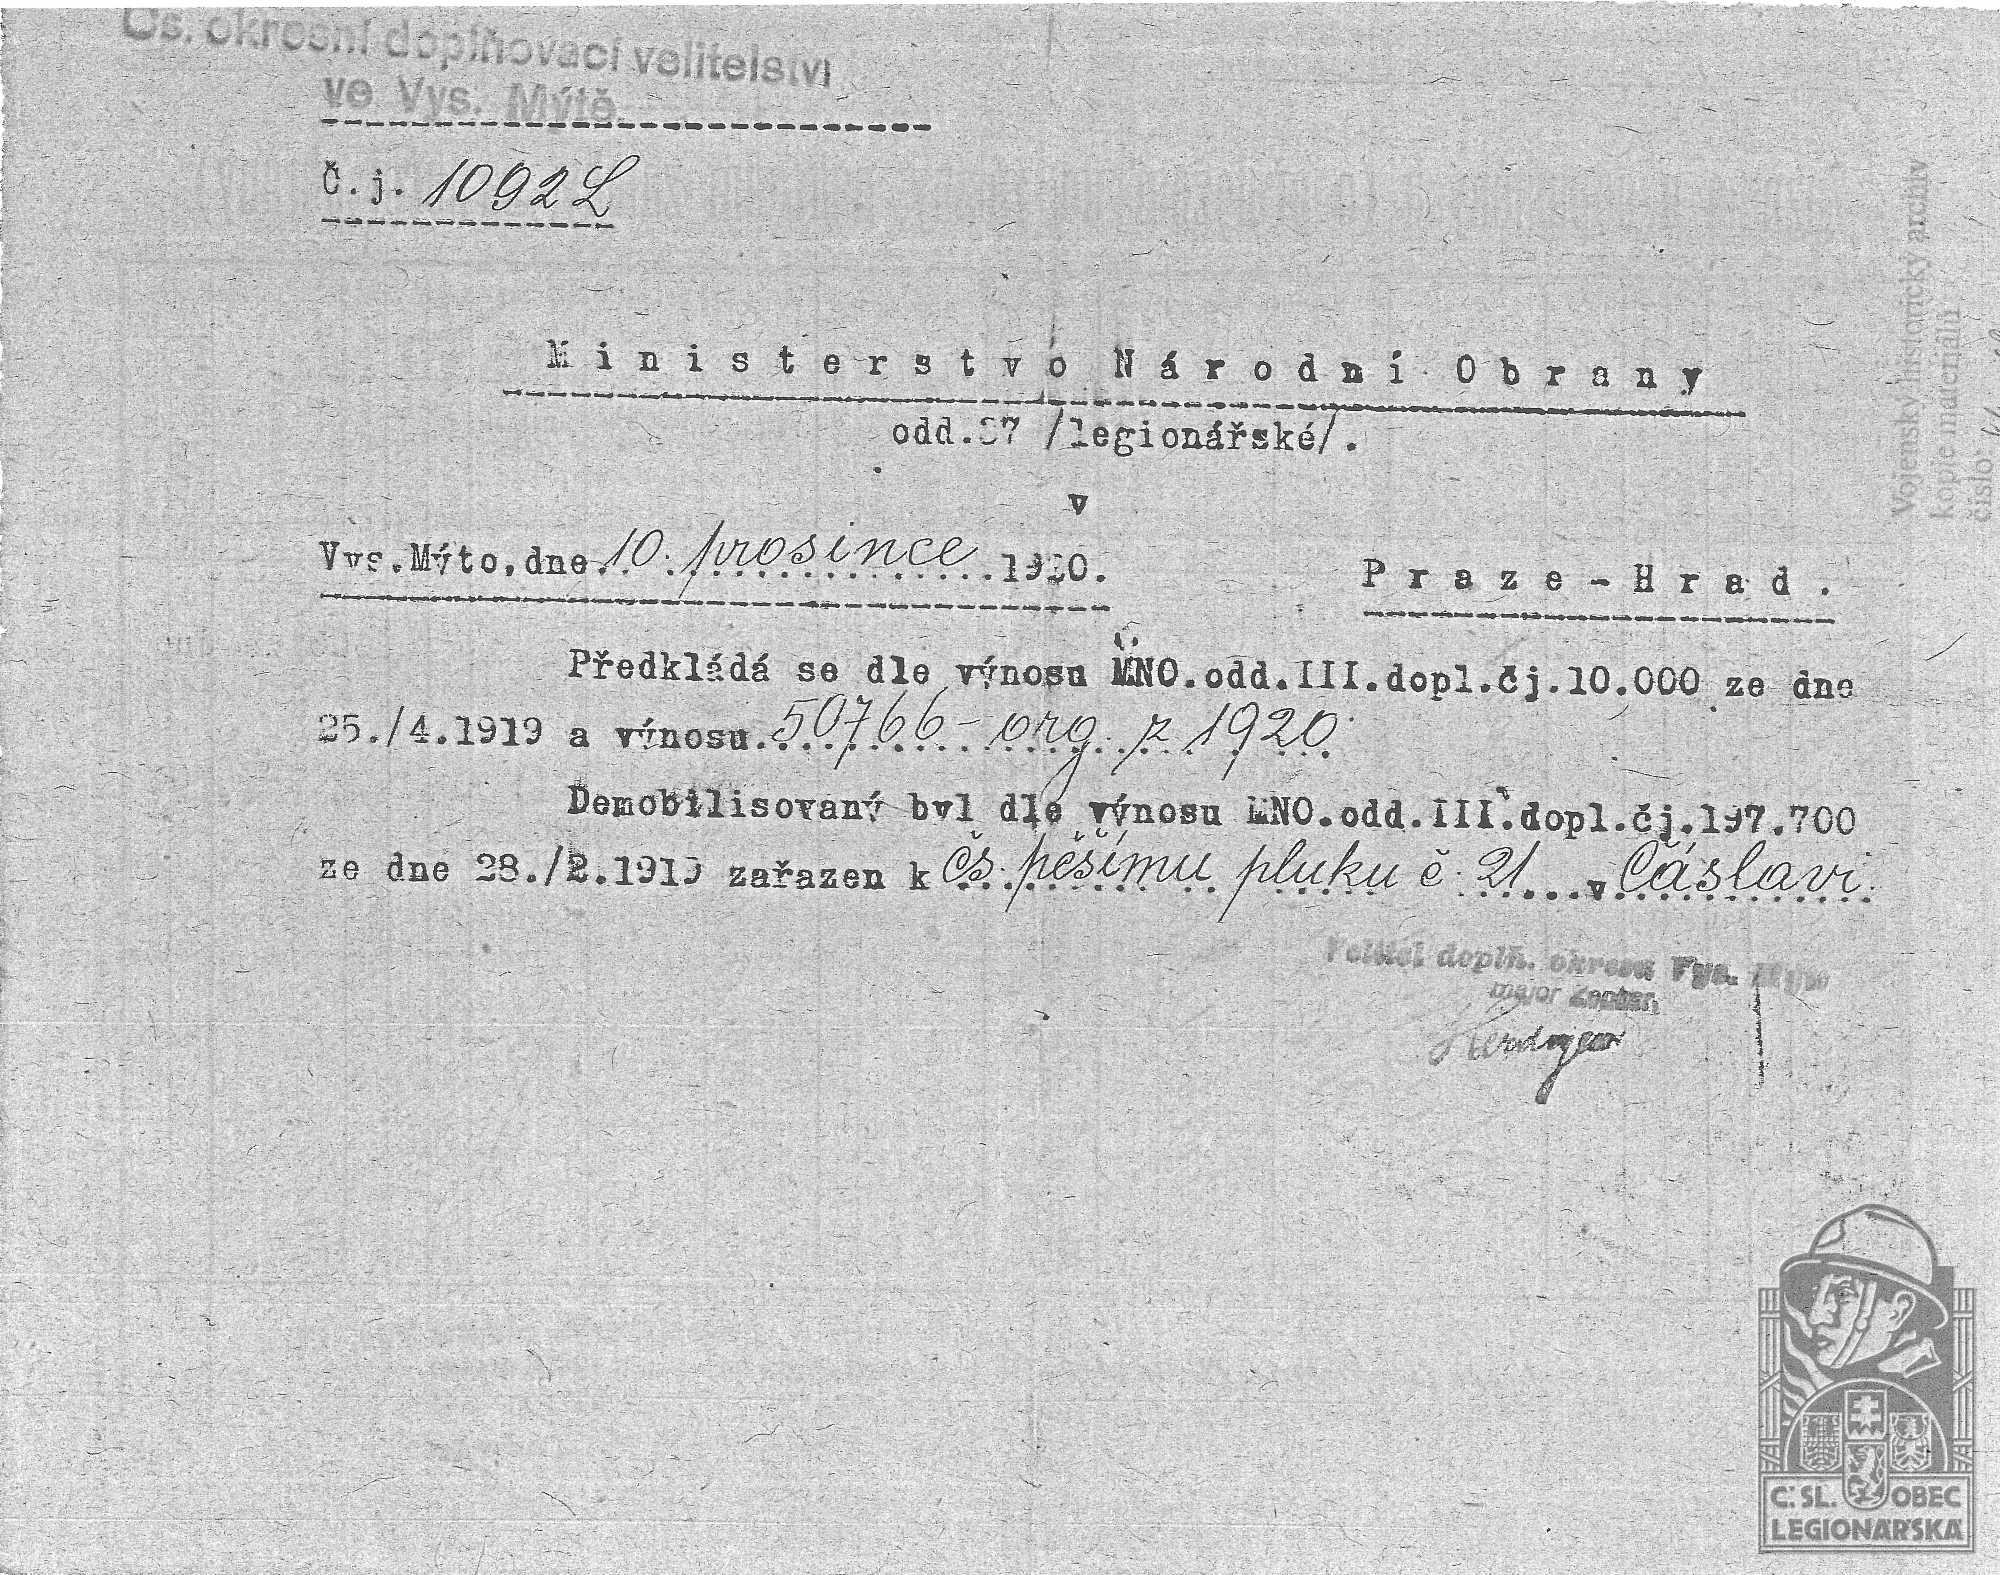 Čs. okresní doplňovací velitelství
ve Vys. Mýtě.
Č.j. 1092 L
Ministerstvo Národní Obrany
odd.37 /legionářské/.
v
Vys.Mýto, dne 10. prosince 1920.
Praze-Hrad.
Předkládá se dle výnosu MNO.odd.III.dopl.čj.10.000 ze dne
25./4.1919 a výnosu 50766-org. z 1920.
Demobilisovaný byl dle výnosu MNO.odd.III.dopl.čj.197.700
ze dne 28./2.1919 zařazen k čs. pěšímu pluku č. 21 v Čáslavi.
Velitel doplň. okresu Vys. Mýto
major
Vojenský historický archiv
kopie materiálu
číslo:
Č. SL. OBEC
LEGIONÁŘSKÁ